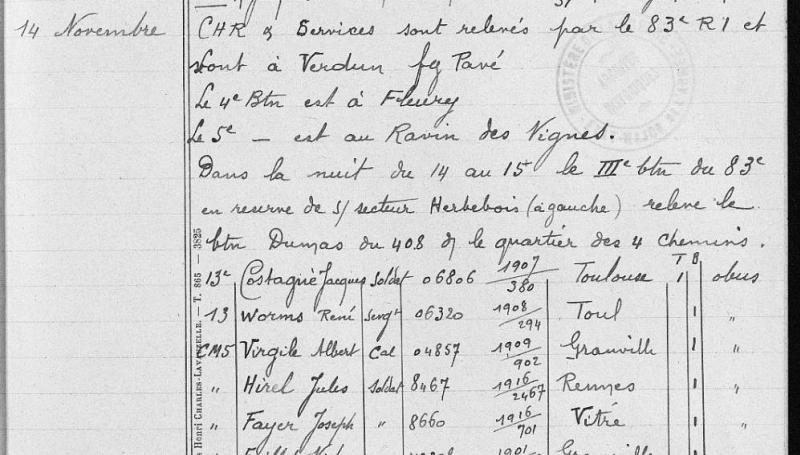 14 Novembre CHR & Services sont relevés par le 83e RI et
vont à Verdun fg Pavé
Le 4e Btn est à Fleury
Le 5e — est au Ravin des Vignes.
Dans la nuit du 14 au 15 le IIIe btn du 83e
en reserve de s/ secteur Herbebois (à gauche) relève le
btn Dumas du 408 ds le quartier des 4 chemins.
T B
13e Costagné Jacques Soldat 06806 1907/380 Toulouse 1 obus
13 Worms René Sergt 06320 1908/294 Toul 1 "
CM5 Virgile Albert Cal 04857 1909/902 Granville 1 "
" Hirel Jules Soldat 8467 1916/2467 Rennes 1 "
" Fayer Joseph " 8660 1916/701 Vitré 1 "
Henri CHARLES-LAVAUZELLE. — T. 865 — 3825